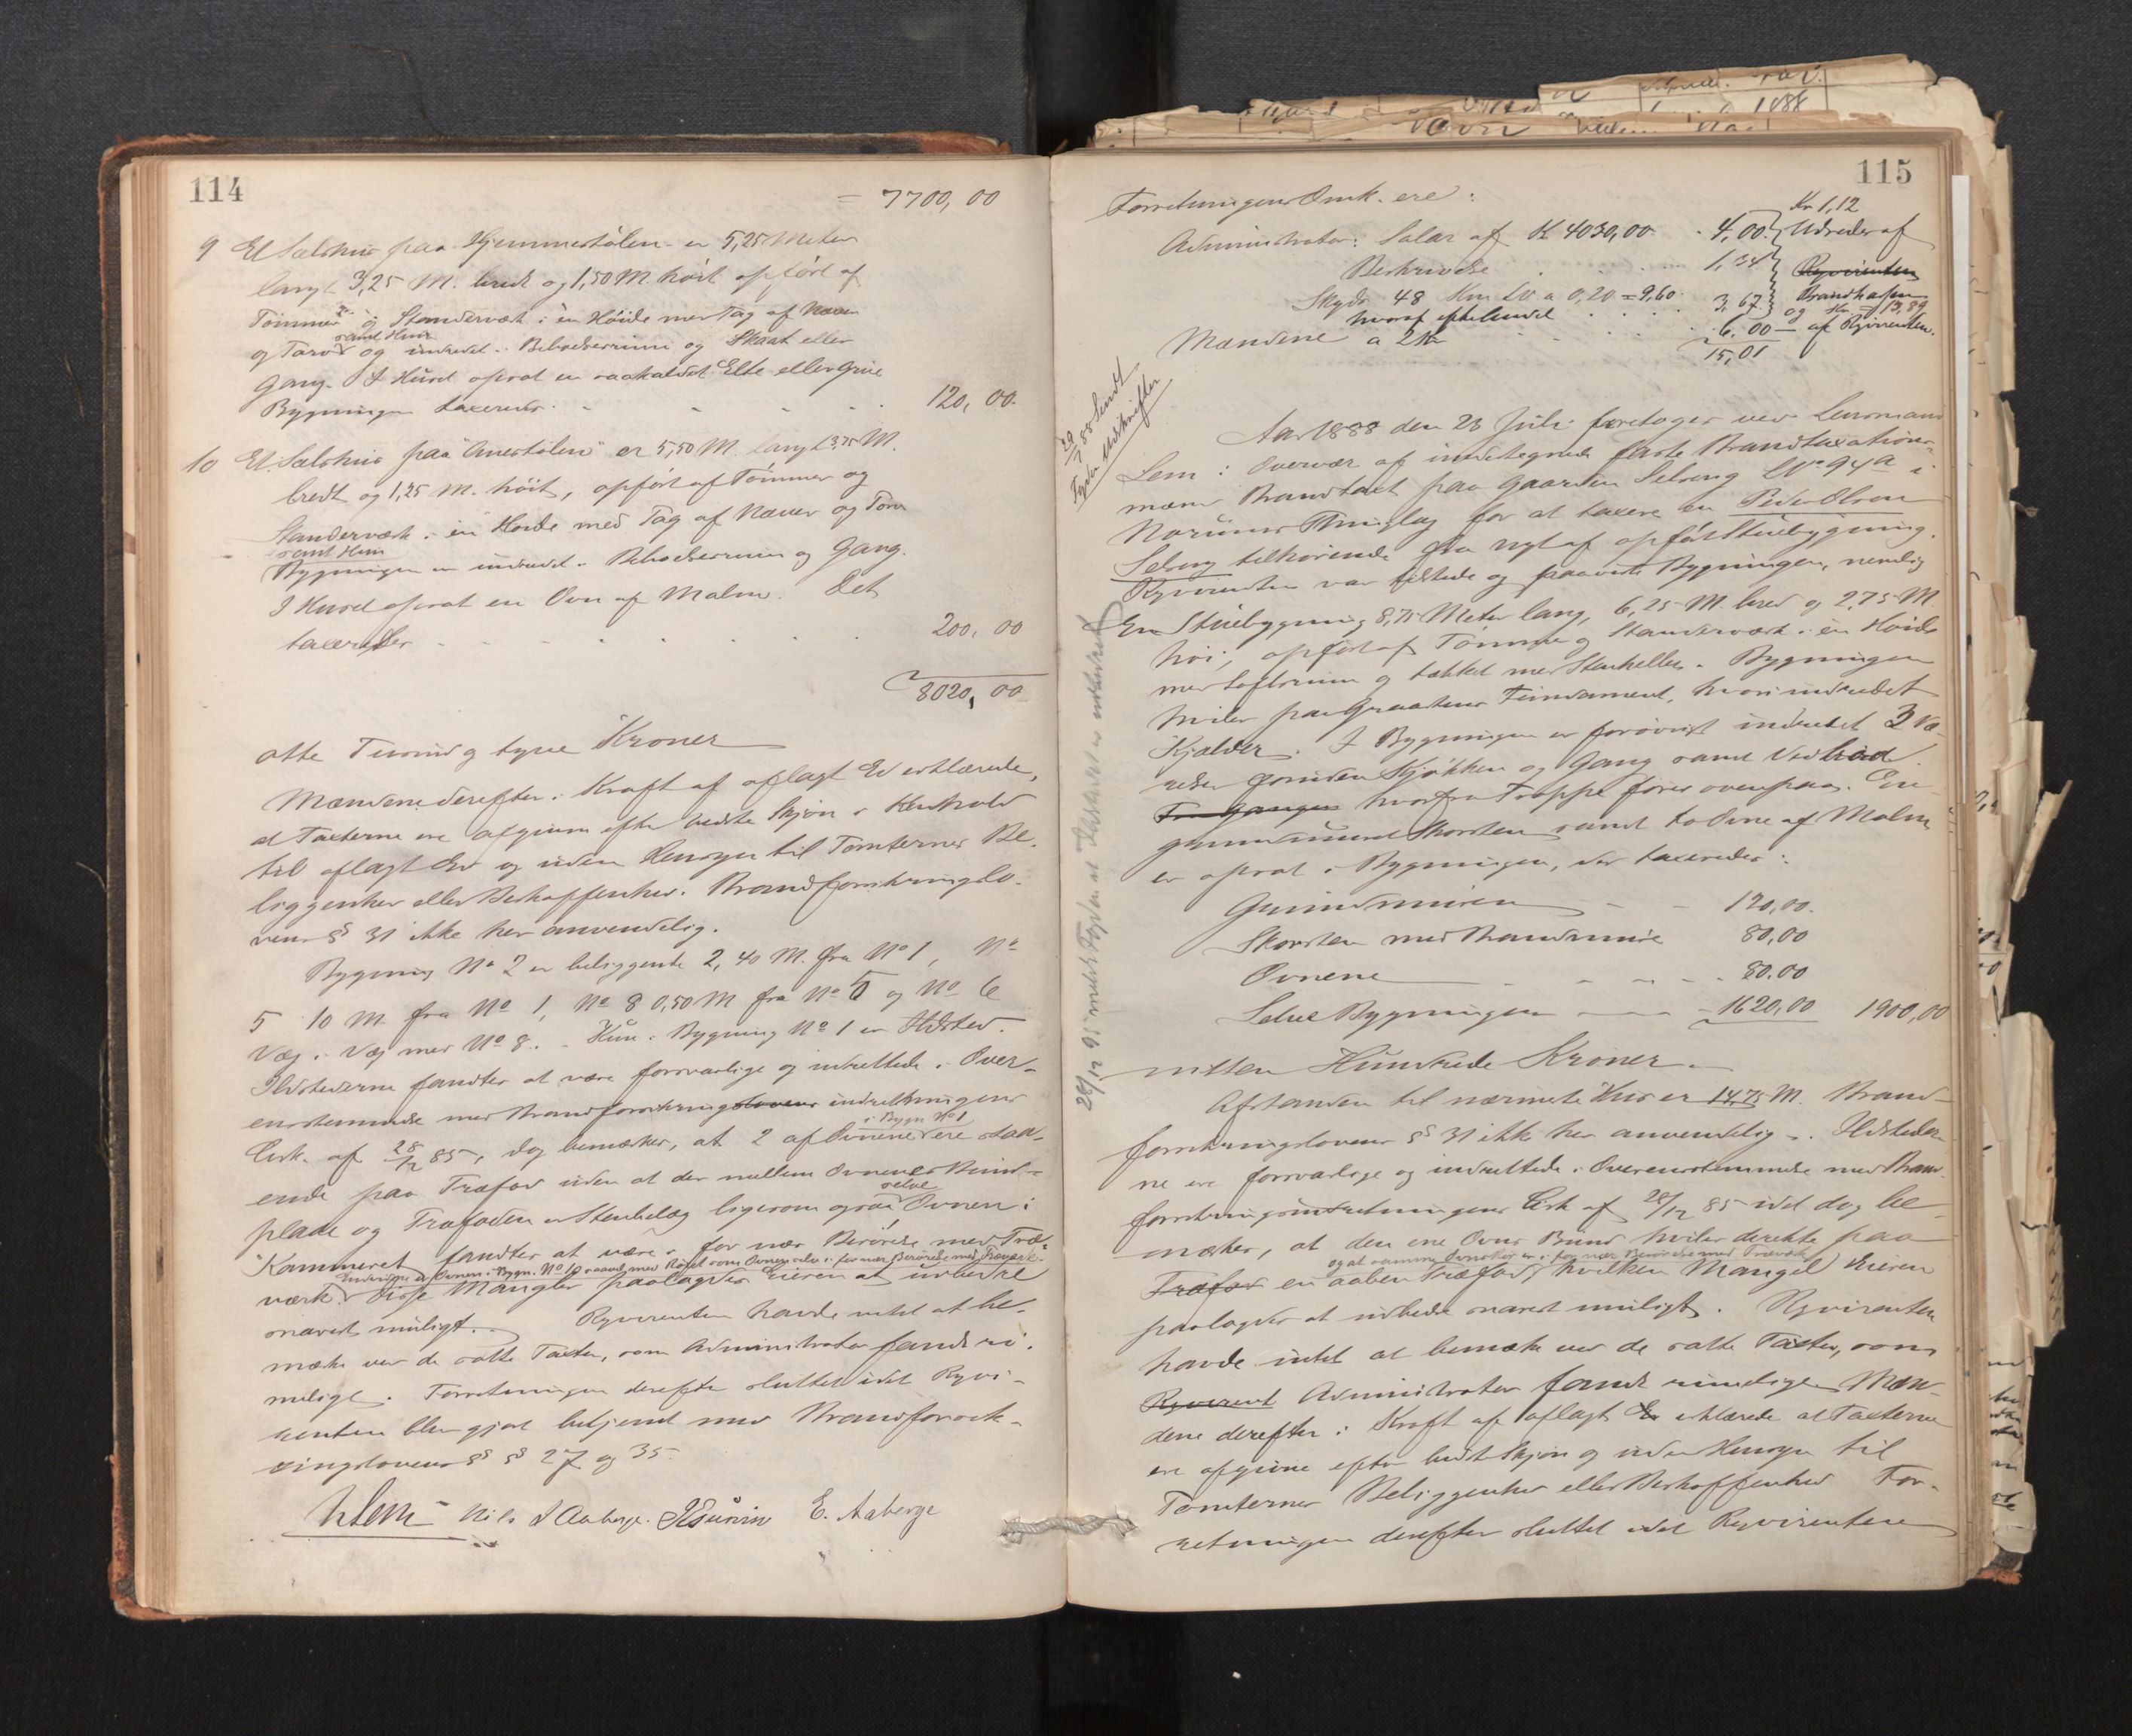 114
= 7700,00
9 Et Sælshus paa Hjemmestølen er 5,25 Meter
langt 3,25 M. bredt og 1,50 M. höit opfört af
Tömmer og Standerværk i en Höide med Tag af Næver
samt Huus
og Torv og indredet Beboelsesrum og Skaat eller
Gang. I Huset opsat en saakaldet Elte eller Grue
Bygningen taxeredes 120,00.
10 Et Sælshus paa "Anestølen" er 5,50 M. langt 3,75 M.
bredt og 1,25 M. höit, opfört af Tömmer og
Standerværk i en Höide med Tag af Næver og Torv
samt Huus
Bygningen er indredet Beboelsesrum og Gang.
I Huset opsat en Ovn af Malm. Det
taxeredes 200,00
8020,00
otte Tusind og tyve Kroner
Mændene derefter i Kraft af aflagt Ed erklærede,
at Taxterne ere afgivne efter bedste Skjön i Henhold
til aflagt Ed og uden Hensyn til Tomternes Be-
liggenhed eller Beskaffenhed. Brandforsikringslo-
vens § 31 ikke her anvendelig.
Bygning No 2 er beliggende 2,40 M. fra No 1, No
5 10 M fra No 1, No 8 0,50 M fra No 5 og No 6
Væg i Væg med No 8. - Kun i Bygning No 1 er Ildsted.
Ildstederne fandtes at være forsvarlige og indrettede i Over-
ensstemmelse med Brandforsikringslovens indretningens
i Bygn No 1
Cirk. af 28/12 85, dog bemærkes, at 2 af Ovnene ere staa-
ende paa Træfod uden at der mellem Ovnenes Bund-
selve
plade og Træfoden er Stenbelæg ligesom ogsaa Ovnen i
Kammeret fandtes at være i for nær Berörelse med Træ-
Endvidere er Ovnen i Bygn. No 10 saavel med Röret som Ovnen selv i for nær Berörelse med Træværk.
værk. Disse Mangler paalagdes Eieren at udbedre
snarest muligt. Rqvirenten havde intet at be-
mærke ved de satte Taxter, som Administrator fandt ri-
melige. Forretningen derefter sluttet idet Rqvi-
renten blev gjort bekjendt med Brandforsik-
ringslovens §§ 27 og 35.
Lem Nils I Aaberge. E. Aaberge
115
Forretningens Omk. ere:
Kr 1,12
Administrator: Salær af K 4030,00 4,00 Udredes af
Beskrivelse 1,34 Rqvirenten
Skyds 48 Km à 0,20 = 9,60 Brandkassen
hvoraf 3,67 og Kr 13,89
Mændene a 2 Kr 6.00 af Rqvirenten.
15,01
29/7 88 Sendt
Lyster Udskrifter
Aar 1888 den 23 Juli foretoges ved Lensmand
Lem i Overvær af undertegnede faste Brandtaxations-
mænd Brandtaxt paa Gaarden Selseng LNo 94a i
Norums Thinglag for at taxere en Peder Olsen
Selseng tilhörende fra nyt af opfört Stuebygning.
Rqvirenten var tilstede og paaviste Bygningen, nemlig
En Stuebygning 8,75 Meter lang, 6,25 M. bred og 2,75 M.
höi, opfört af Tömmer og Standerværk i en Höide
med Loftsrum og tækket med Stenheller. Bygningen
hviler paa Graastens Fundament, hvori indredet
Kjælder. I Bygningen er forövrigt indredet 3 Væ-
relser foruden Kjökken og Gang samt Vedbod
Fra Gangen hvorfra Trappe förer ovenpaa. En
grundmuret Skorsten samt to Ovne af Malm
er opsat i Bygningen, der taxeredes:
Grundmuren 120,00.
Skorsten med Brandmure 80,00
Ovnene 80.00
Selve Bygningen 1620,00 1900,00
nitten Hundrede Kroner.
Afstanden til nærmeste Hus er 14,75 M. Brand-
forsikringslovens § 31 ikke her anvendelig. Ildsteder-
ne ere forsvarlige og indrettede i Overensstemmelse med Brand-
forsikringsindretningens Cirk af 28/12 85 idet dog be-
mærkes, at den ene Ovns Bund hviler direkte paa
og at samme Ovnsrör er i for nær Berörelse med Træværk
Træfod en aaben Træfod, hvilken Mangel Eieren
paalagdes at udbedre snarest muligt. Rqvirenten
havde intet at bemærke ved de satte Taxter, som
Rqvirent Administrator fandt rimelige. Mæn-
dene derefter i Kraft af aflagt Ed erklærede at Taxterne
ere afgivne efter bedste Skjön og uden Hensyn til
Tomternes Beliggenhed eller Beskaffenhed For-
retningen derefter sluttet idet Rqvirenten